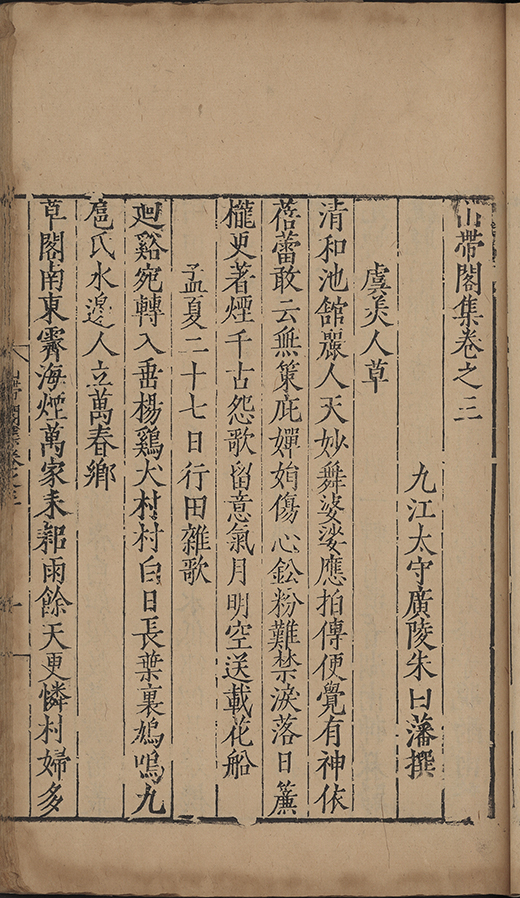 山帶閣集卷之三
九江太守廣陵朱曰藩撰
虞美人草
清和池館麗人天妙舞婆娑應拍傳便覺有神依
蓓蕾敢云無策庇嬋娟傷心鉛粉難禁淚落日簾
櫳更著煙千古怨歌留意氣月明空送載花船
孟夏二十七日行田雜歌
廻谿宛轉入垂楊鷄犬村村白日長葉裏鳩鳴九
扈氏水邊人立萬春鄉
草閣南東霽海煙萬家耒耜雨餘天更憐村婦多
山帶閣集卷之三
一